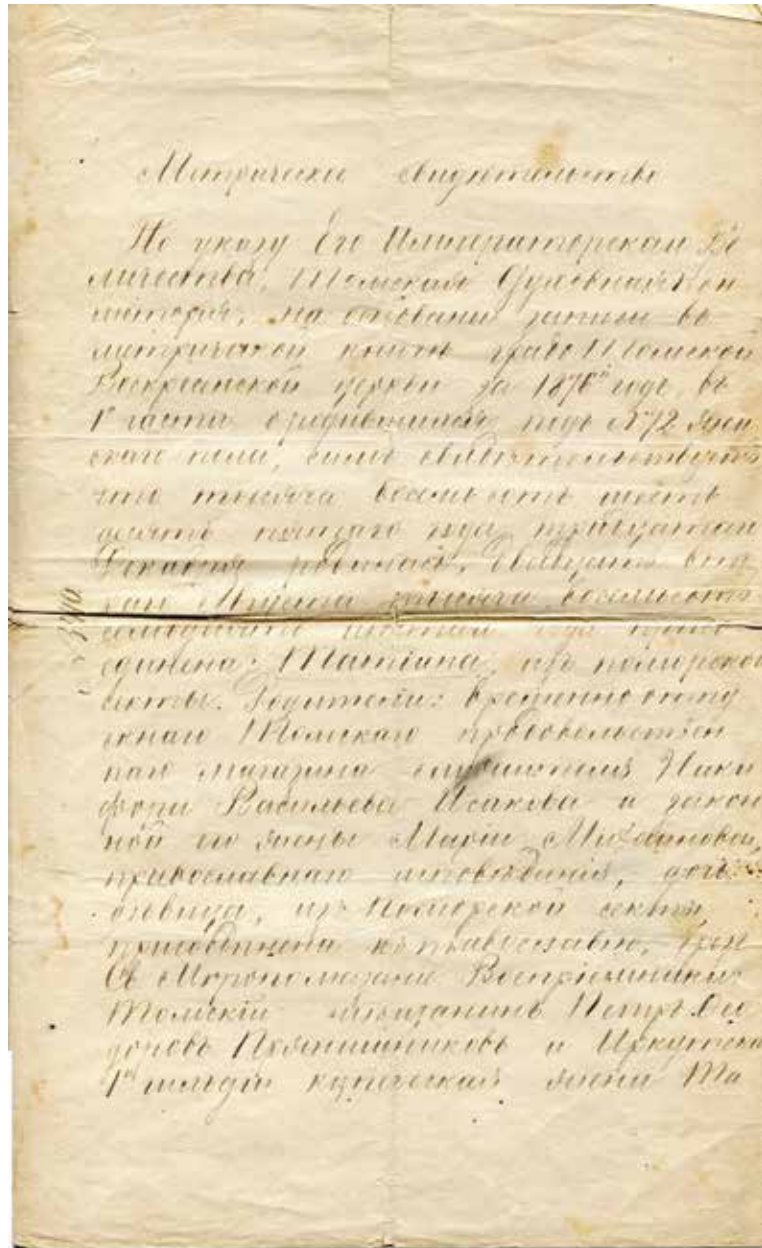 Метрическ свидетельство
По указу Его Императорскаго Ве
личества, Томская Духовная Кон
систорiя, на основанiи записи въ
метрической книгѣ градо Томской
Воскресенской церкви за 1876й годъ, въ
1й части о родившихся подъ №72 жен
скаго пола, симъ свидѣтельствуетъ
что тысяча восемьсотъ шесть
десятъ пятаго года тридцатаго
Декабря родилась, двадцать
Августа тысяча восемьсотъ
семьдесятъ шестаго года
единена: Татiана, изъ поморской
секты. Родители:
Томскаго продовольствен
наго магазина служителя Ники
фора Васильева Исакова и закон
ной его жены Марiи Михайловой,
православнаго исповѣданiя, дочь
дѣвица, изъ Поморской секты,
присоединена къ православiю, чрезъ
Св. Мvропомазанiе Воспрiемники:
Томскiй мѣщанинъ Петръ Ѳе
доровъ Прянишниковъ и Иркутская
1й гильдiи купеческая жена Та